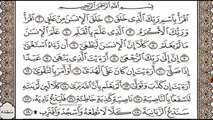 بِسْمِ اللَّهِ الرَّحْمَٰنِ الرَّحِيمِ
اقْرَأْ بِاسْمِ رَبِّكَ الَّذِي خَلَقَ ۝ خَلَقَ الْإِنسَانَ مِنْ عَلَقٍ ۝
اقْرَأْ وَرَبُّكَ الْأَكْرَمُ ۝ الَّذِي عَلَّمَ بِالْقَلَمِ ۝ عَلَّمَ الْإِنسَانَ
مَا لَمْ يَعْلَمْ ۝ كَلَّا إِنَّ الْإِنسَانَ لَيَطْغَىٰ ۝ أَن رَّآهُ اسْتَغْنَىٰ ۝
إِنَّ إِلَىٰ رَبِّكَ الرُّجْعَىٰ ۝ أَرَأَيْتَ الَّذِي يَنْهَىٰ ۝ عَبْدًا إِذَا صَلَّىٰ ۝
أَرَأَيْتَ إِن كَانَ عَلَى الْهُدَىٰ ۝ أَوْ أَمَرَ بِالتَّقْوَىٰ ۝ أَرَأَيْتَ إِن كَذَّبَ
وَتَوَلَّىٰ ۝ أَلَمْ يَعْلَم بِأَنَّ اللَّهَ يَرَىٰ ۝ كَلَّا لَئِن لَّمْ يَنتَهِ
لَنَسْفَعًا بِالنَّاصِيَةِ ۝ نَاصِيَةٍ كَاذِبَةٍ خَاطِئَةٍ ۝ فَلْيَدْعُ نَادِيَهُ ۝
سَنَدْعُ الزَّبَانِيَةَ ۝ كَلَّا لَا تُطِعْهُ وَاسْجُدْ وَاقْتَرِب ۝